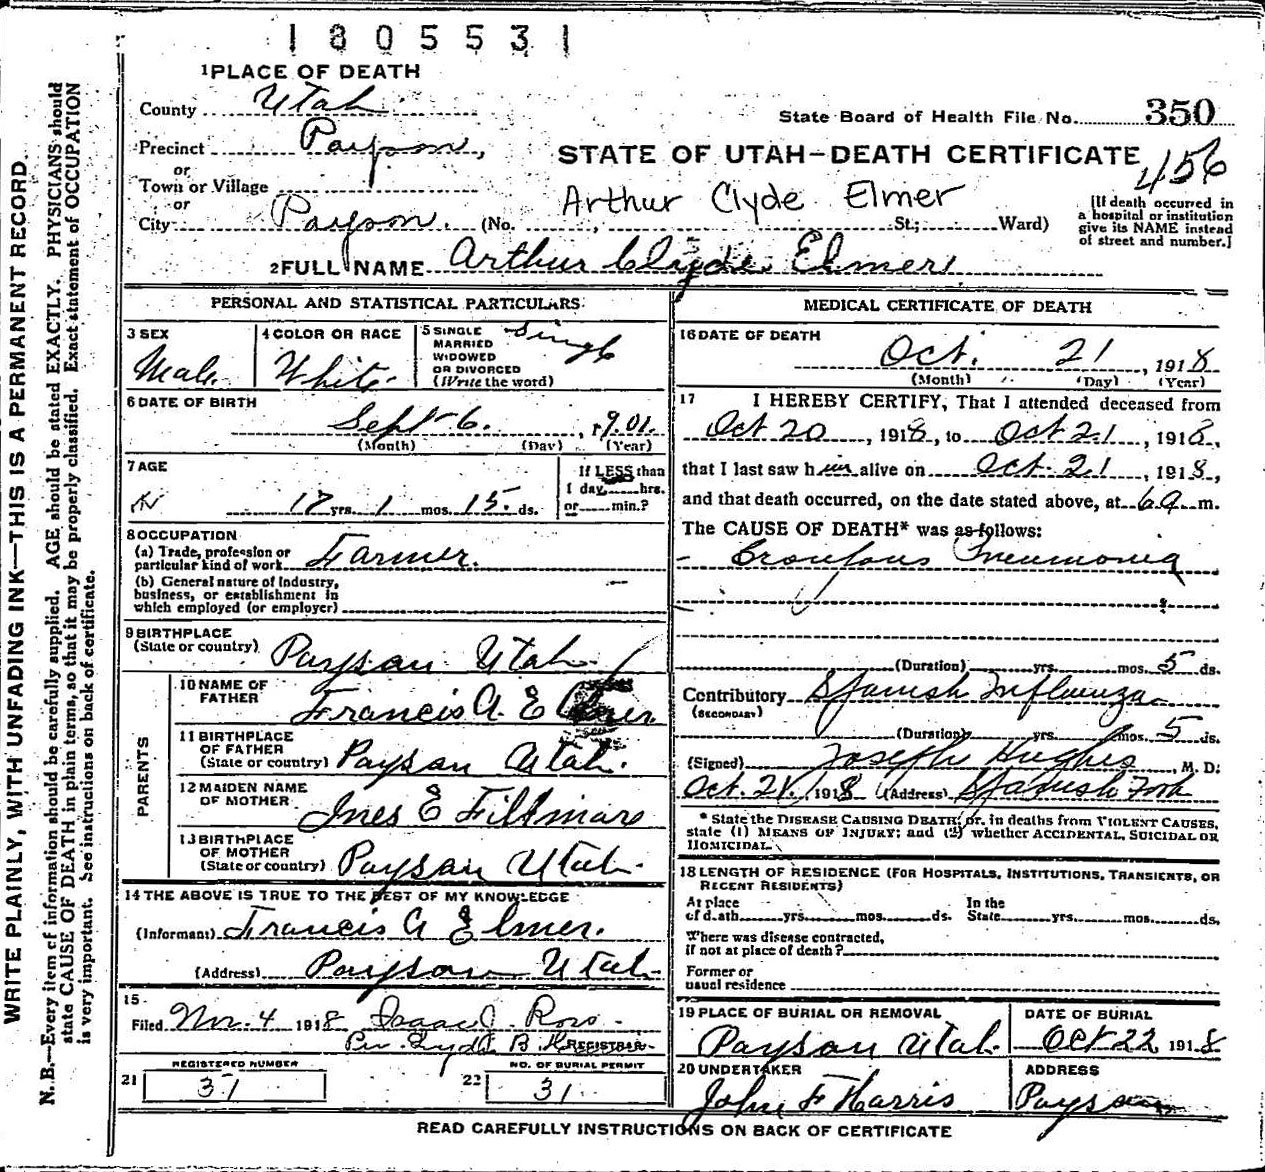 1805531
1 PLACE OF DEATH
County Utah
State Board of Health File No. 350
Precinct Payson,
STATE OF UTAH—DEATH CERTIFICATE
456
or
Town or Village
Arthur Clyde Elmer
or
City Payson. (No. , St.; Ward)
[If death occurred in
a hospital or institution
give its NAME instead
of street and number.]
2 FULL NAME Arthur Clyde Elmer
PERSONAL AND STATISTICAL PARTICULARS
3 SEX
Male
4 COLOR OR RACE
White
5 SINGLE
MARRIED
WIDOWED
OR DIVORCED
(Write the word)
Single
6 DATE OF BIRTH
Sept 6. , 1901.
(Month) (Day) (Year)
7 AGE
17 yrs. 1 mos. 15. ds.
If LESS than
1 day, hrs.
or min.?
8 OCCUPATION
(a) Trade, profession or
particular kind of work Farmer.
(b) General nature of Industry,
business, or establishment in
which employed (or employer)
9 BIRTHPLACE
(State or country) Payson Utah
PARENTS
10 NAME OF
FATHER
Francis A. Elmer
11 BIRTHPLACE
OF FATHER
(State or country) Payson Utah.
12 MAIDEN NAME
OF MOTHER
Ines E Fillmore
13 BIRTHPLACE
OF MOTHER
(State or country) Payson Utah
14 THE ABOVE IS TRUE TO THE BEST OF MY KNOWLEDGE
(Informant) Francis A Elmer.
(Address) Payson Utah
15
Filed Nov. 4 1918 Isaac J. Ross
Per B REGISTRAR
REGISTERED NUMBER
21 37
NO. OF BURIAL PERMIT
22 31
MEDICAL CERTIFICATE OF DEATH
16 DATE OF DEATH
Oct. 21 , 1918
(Month) (Day) (Year)
17 I HEREBY CERTIFY, That I attended deceased from
Oct 20 , 1918, to Oct 21 , 1918,
that I last saw him alive on Oct. 21 , 1918,
and that death occurred, on the date stated above, at 6 a m.
The CAUSE OF DEATH* was as follows:
Croupous Pneumonia
(Duration) yrs. mos. 5 ds.
Contributory Spanish Influenza
(SECONDARY)
(Duration) yrs. mos. 5 ds.
(Signed) Joseph Hughes , M. D.
Oct. 21, 1918 (Address) Spanish Fork
* State the DISEASE CAUSING DEATH; or, in deaths from VIOLENT CAUSES,
state (1) MEANS OF INJURY; and (2) whether ACCIDENTAL, SUICIDAL OR
HOMICIDAL.
18 LENGTH OF RESIDENCE (FOR HOSPITALS, INSTITUTIONS, TRANSIENTS, OR
RECENT RESIDENTS)
At place
of death yrs. mos. ds.
In the
State yrs. mos. ds.
Where was disease contracted,
if not at place of death?
Former or
usual residence
19 PLACE OF BURIAL OR REMOVAL
Payson Utah.
DATE OF BURIAL
Oct 22 1918
20 UNDERTAKER
John F Harris
ADDRESS
Payson
READ CAREFULLY INSTRUCTIONS ON BACK OF CERTIFICATE
WRITE PLAINLY, WITH UNFADING INK—THIS IS A PERMANENT RECORD
N. B.—Every item of information should be carefully supplied. AGE should be stated EXACTLY. PHYSICIANS should
state CAUSE OF DEATH in plain terms, so that it may be properly classified. Exact statement of OCCUPATION
is very important. See instructions on back of certificate.